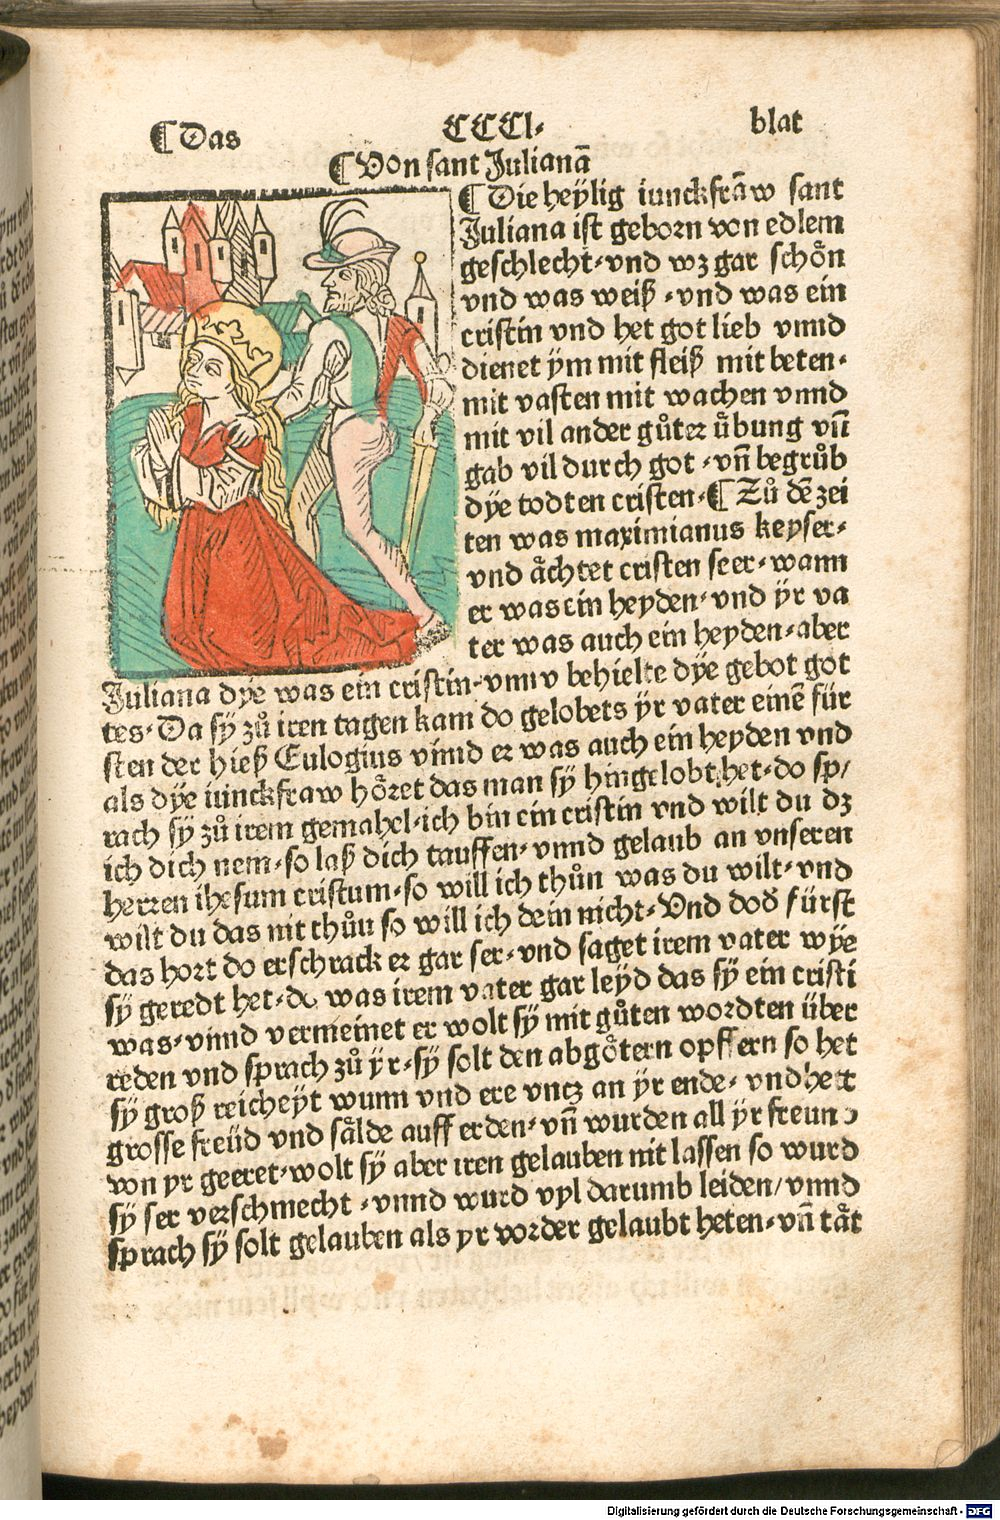 ¶ Das CCCl· blat
¶ Von sant Julianã
¶ Die heÿlig iunckfrãw sant
Juliana ist geborn von edlem
geschlecht·vnd wz gar schoͤn
vnd was weiß ·vnd was ein
cristin vnd het got lieb vnnd
dienet ÿm mit fleiß mit beten·
mit vasten mit wachen vnnd
mit vil ander guͦter uͤbung vñ
gab vil durch got ·vñ begruͦb
dÿe todten cristen·¶ Zuͦ dẽ zei
ten was maximianus keyser·
vnd aͤchtet cristen seer·wann
er was ein heyden·vnd ÿr va
ter was auch ein heyden·aber
Juliana dÿe was ein cristin·vnnd behielte dÿe gebot got
tes·Da sÿ zuͦ iren tagen kam do gelobets ÿr vater einẽ für
sten der hieß Eulogius vnnd er was auch ein heyden vnd
als dÿe iunckfraw hoͤret das man sÿ hingelobt het·do sp/
rach sÿ zuͦ irem gemahel·ich bin ein cristin vnd wilt du dz
ich dich nem·so laß dich tauffen·vnnd gelaub an vnseren
herren ihesum cristum·so will ich thuͦn was du wilt·vnd
wilt du das nit thuͦn so will ich dein nicht·Vnd do đ fürst
das hort do erschrack er gar ser·vnd saget irem vater wÿe
sÿ geredt het·do was irem vater gar leyd das sÿ ein cristi
was·vnnd vermeinet er wolt sÿ mit guͦten wordten über
reden vnd sprach zuͦ ÿr·sÿ solt den abgoͤtern opffern so het
sÿ groß reicheÿt wunn vnd ere vntz an ÿr ende· vnd hett
grosse freüd vnd saͤlde auff erden·vñ wurden all ÿr freund
von yr geeret·wolt sÿ aber iren gelauben nit lassen so wurd
sÿ ser verschmecht ·vnnd wurd vyl darumb leiden/vnnd
sprach sÿ solt gelauben als yr vorder gelaubt heten·vñ taͤt
Digitalisierung gefördert durch die Deutsche Forschungsgemeinschaft - DFG